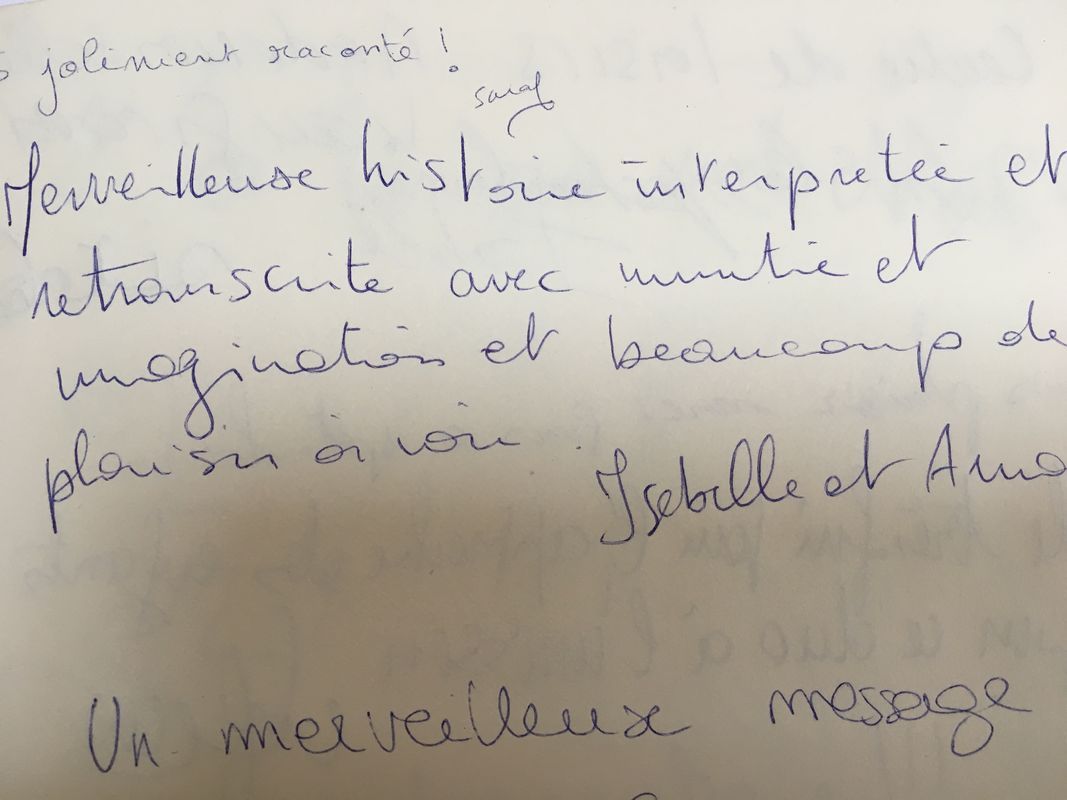 jolîment raconté !
Sarah
Merveilleuse histoire interpretée et
retranscrite avec et
imagination et beaucoup de
plaisir à voir.
Isebelle et
Un merveilleux message